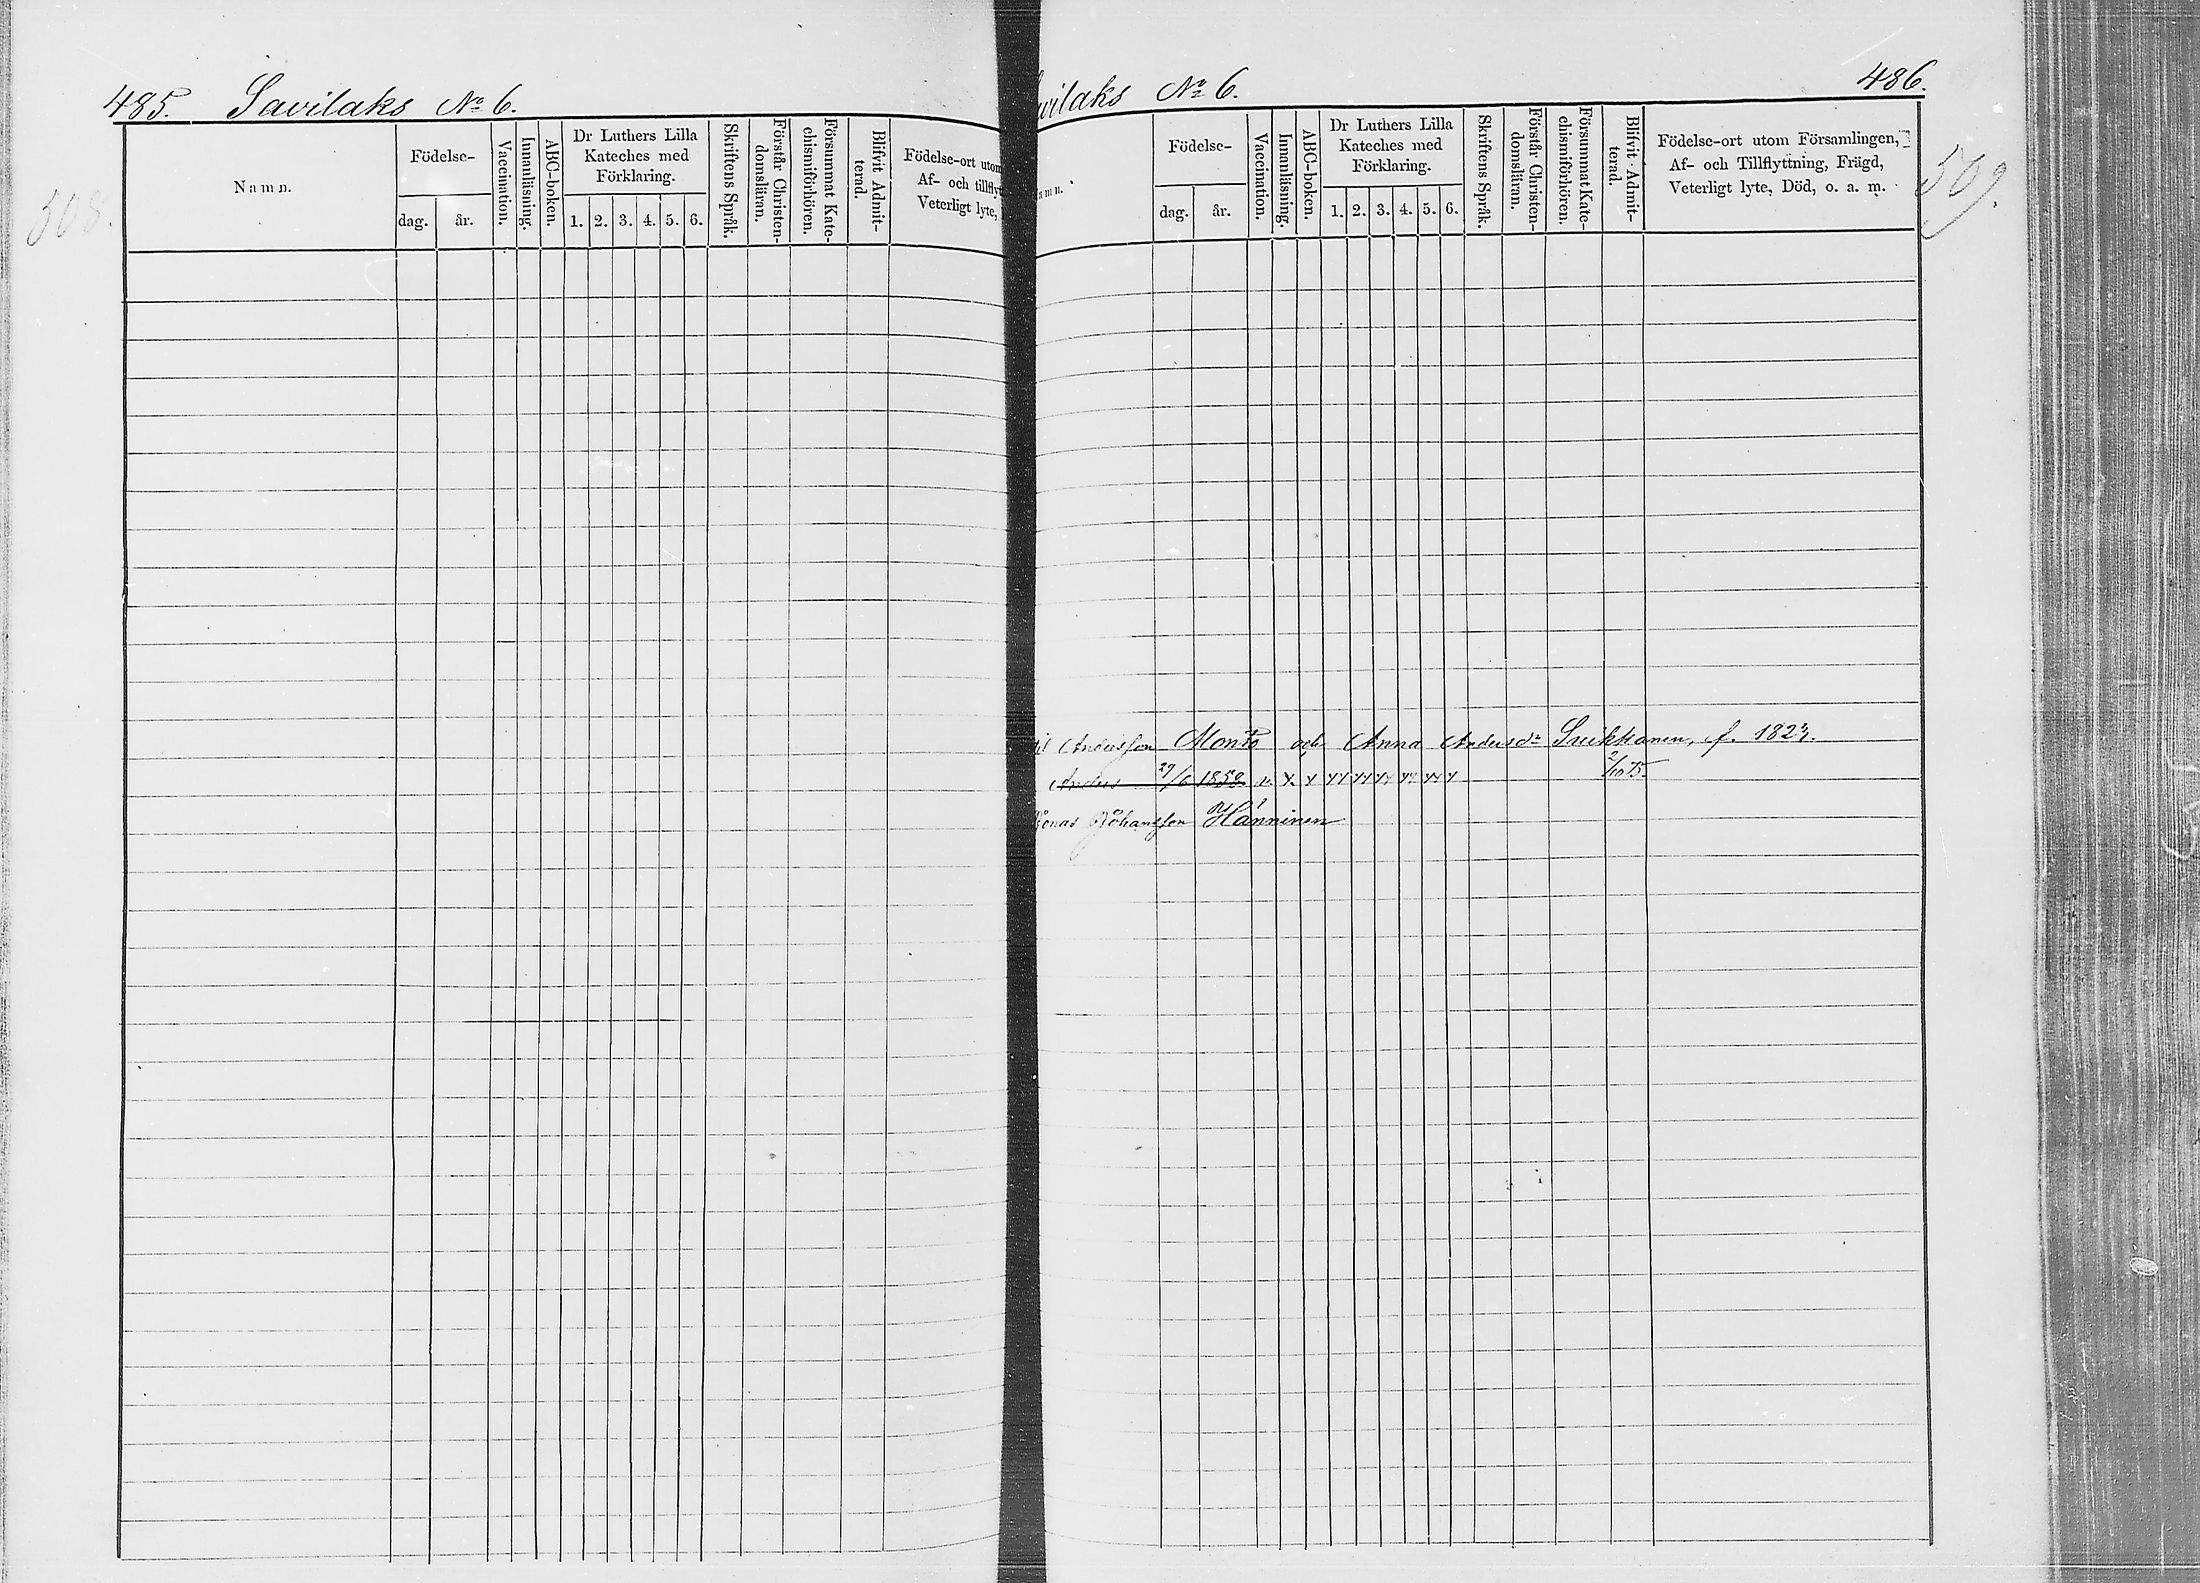 485. Savilaks № 6.
508.
Namn.
Födelse-
dag.
år.
Vaccination.
Innanläsning.
ABC-boken.
Dr Luthers Lilla
Kateches med
Förklaring.
1. 2. 3. 4. 5. 6.
Skriftens Språk.
Förstår Christen-
domsläran.
Försummat Kate-
chismiförhören.
Blifvit Admit-
terad.
Födelse-ort utom
Af- och tillfly
Veterligt lyte,
vilaks № 6.
486.
509.
amn.
Födelse-
dag.
år.
Vaccination.
Innanläsning.
ABC-boken.
Dr Luthers Lilla
Kateches med
Förklaring.
1. 2. 3. 4. 5. 6.
Skriftens Språk.
Förstår Christen-
domsläran.
Försummat Kate-
chismiförhören.
Blifvit Admit-
terad.
Födelse-ort utom Församlingen,
Af- och Tillflyttning, Frägd,
Veterligt lyte, Död, o. a. m.
Andersson och Anna Andersdr
Anders 29/6 v. x x
2/10 75.
Jonas Johansson Hänninen